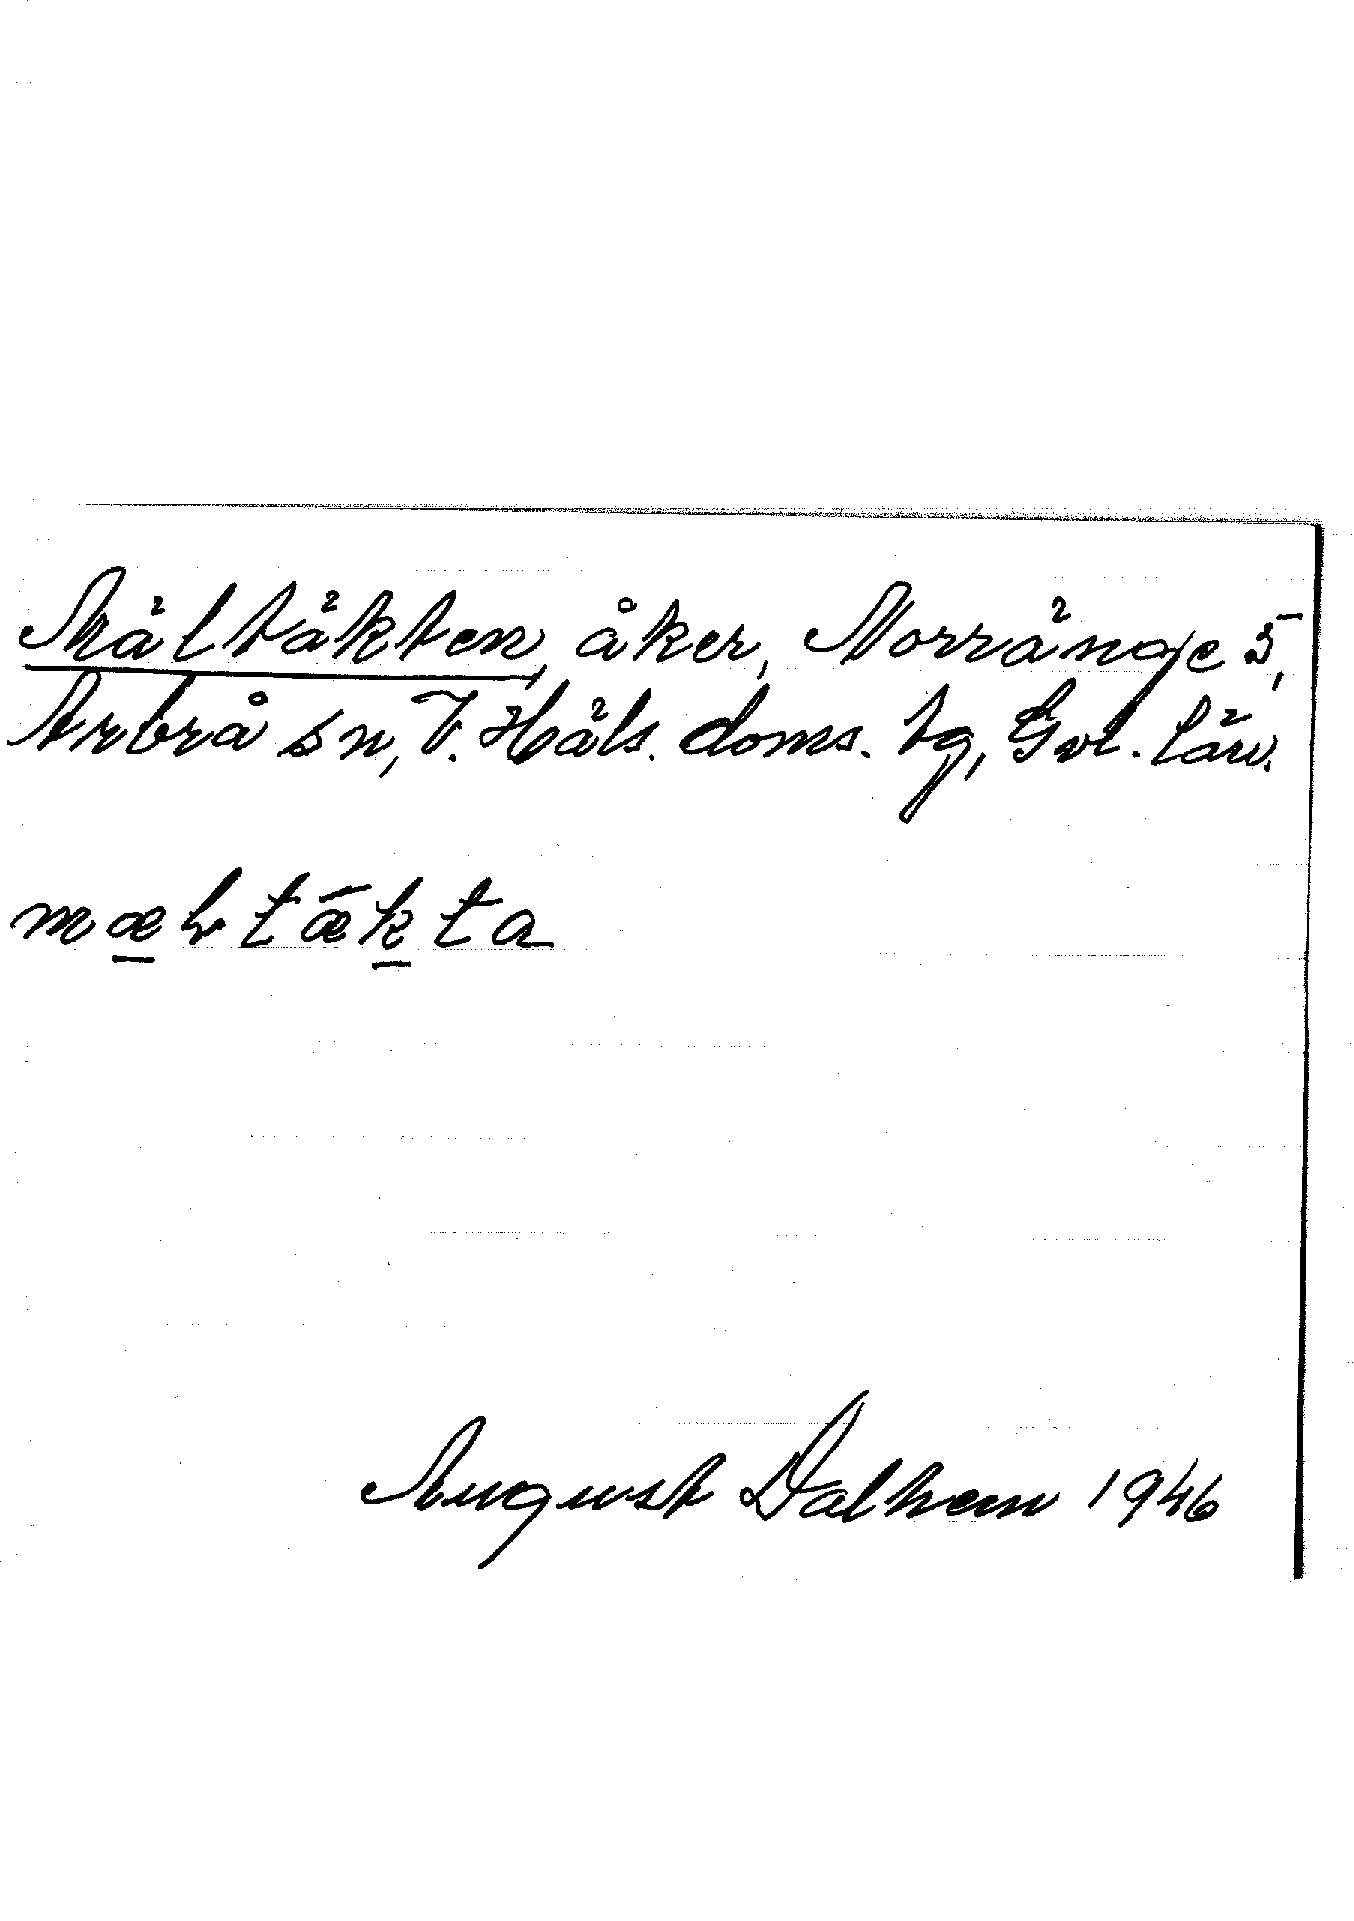 Mältäkten, åker, Norränge 5,
Arbrå sn, V. Häls. doms. tg, Gvl. län.
mæltækta
August Dalhem 1946